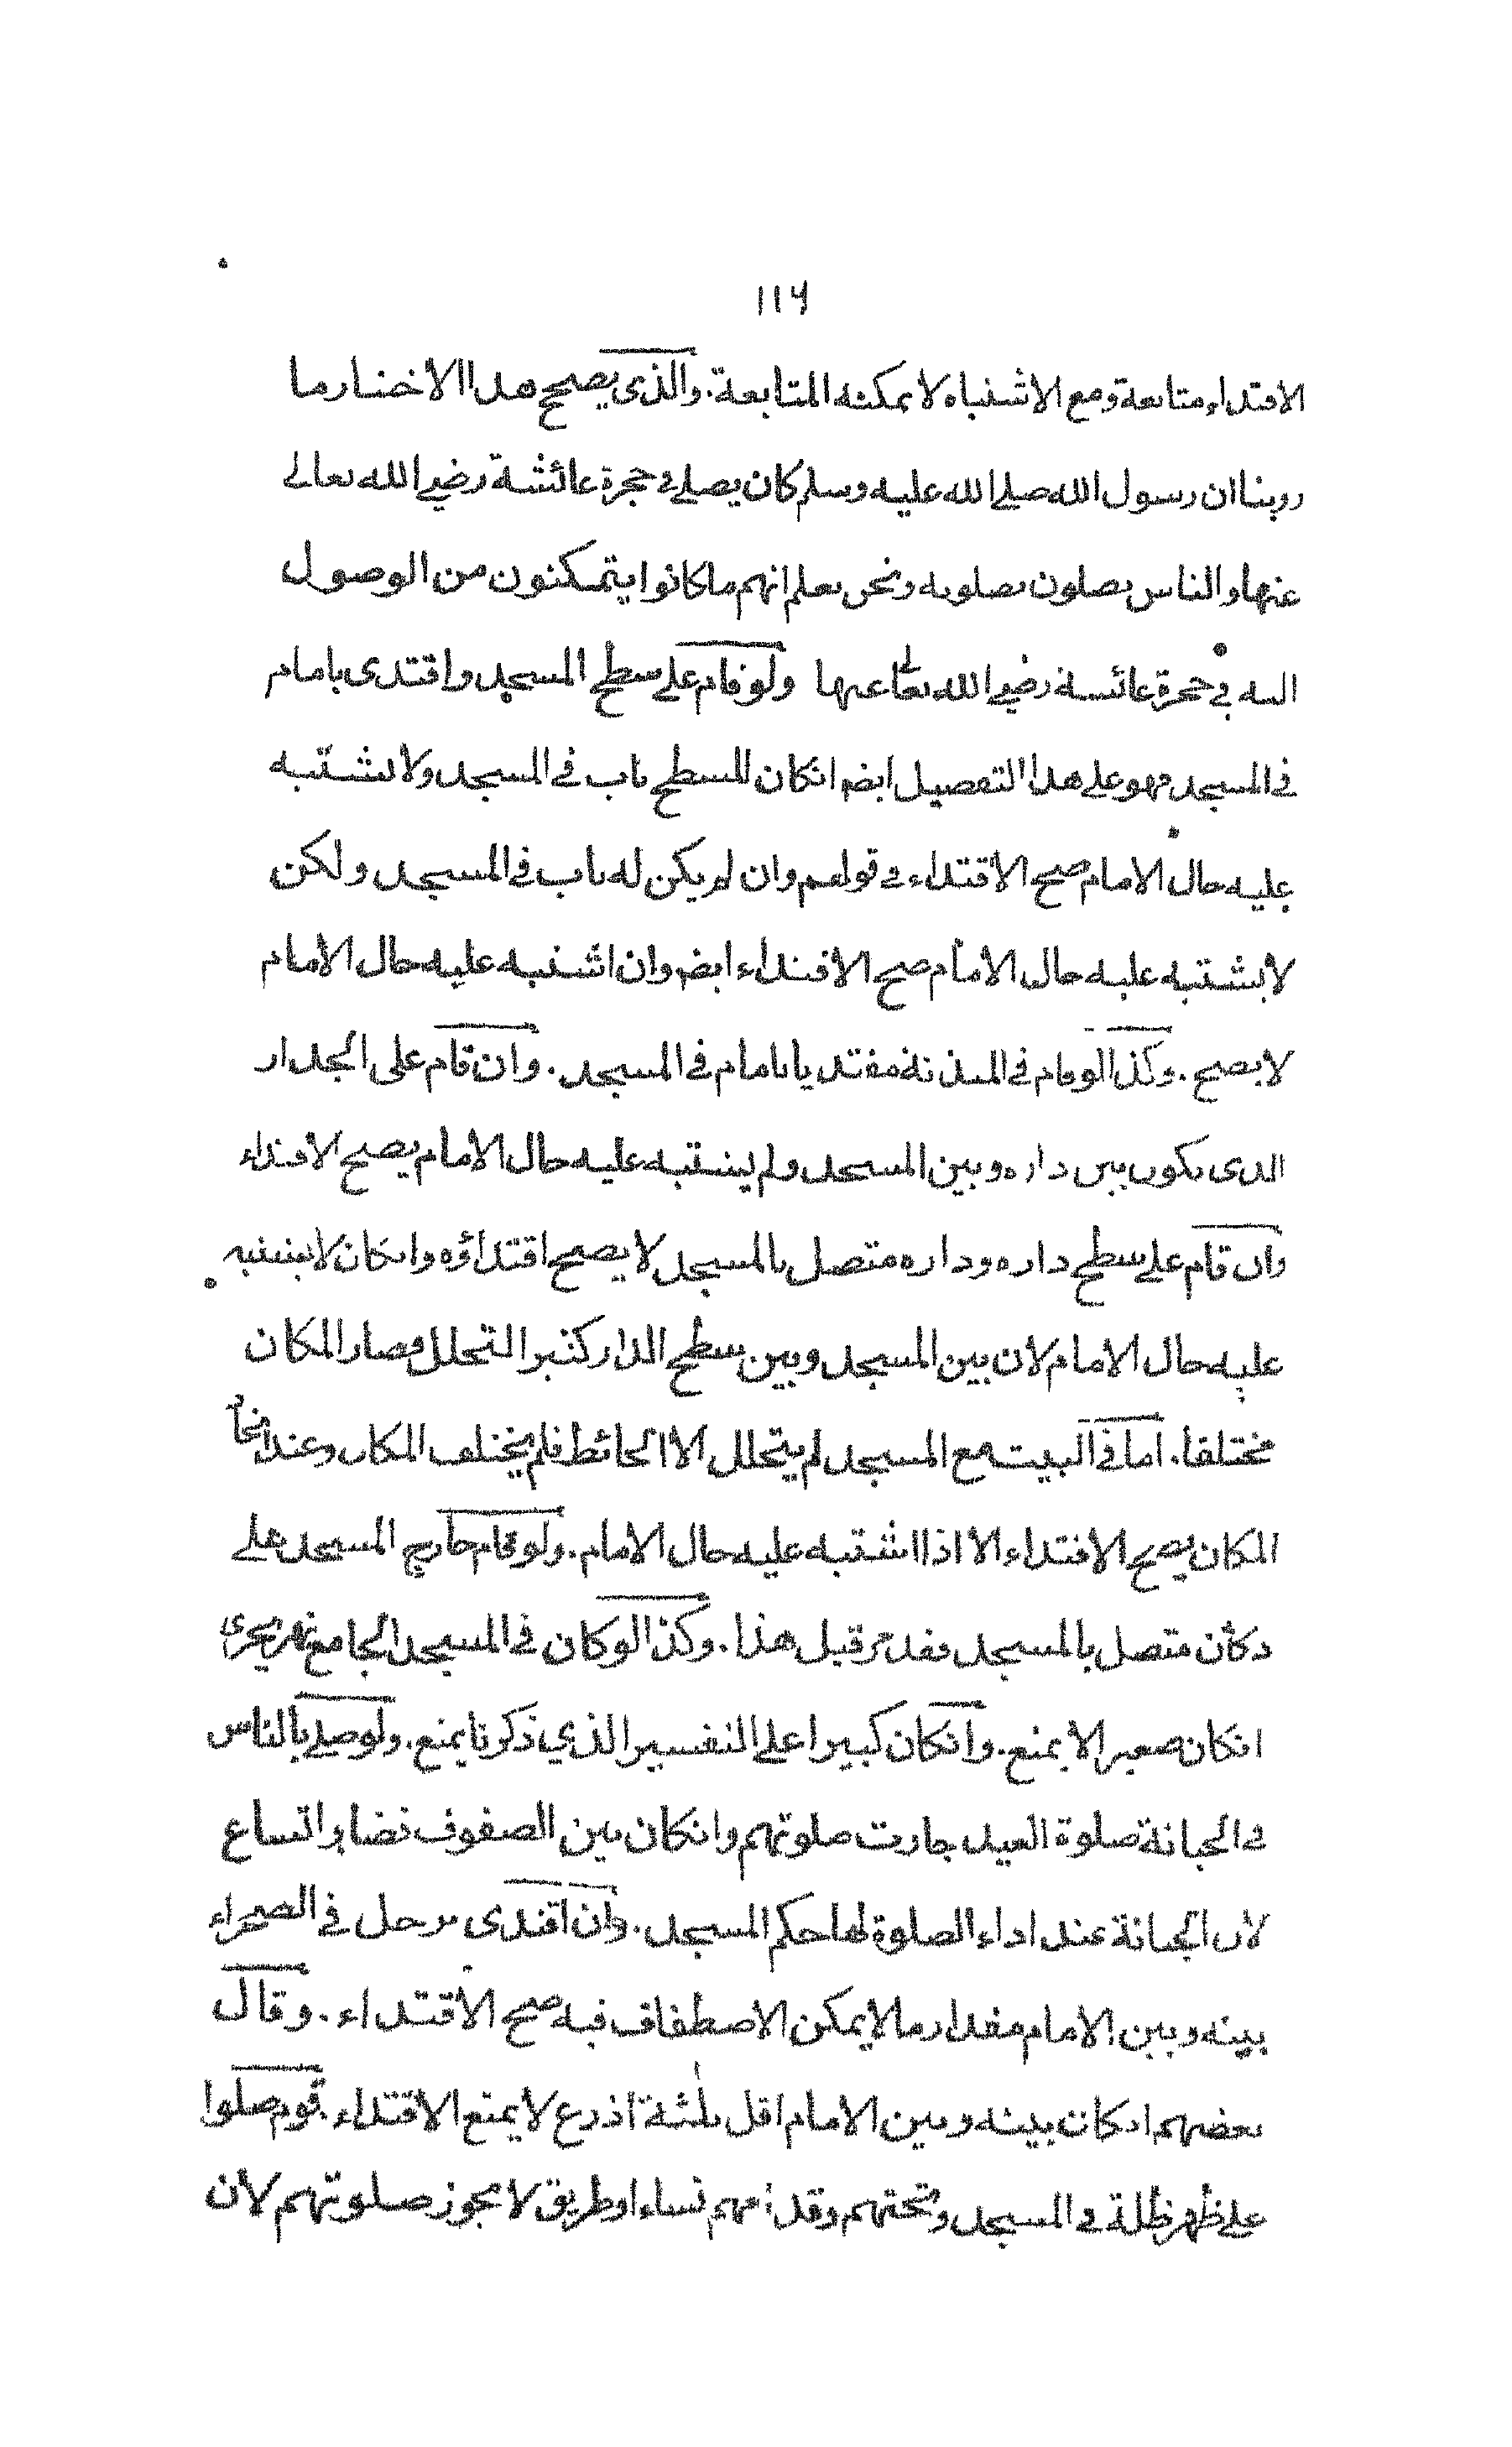 ١١٦
الاقتداء متابعة ومع الاشتباه لا يمكنه المتابعة . والذي يصحح هذا الاختيار ما
روينا ان رسول الله صلى الله عليه وسلم كان يصلي في حجرة عائشة رضي الله تعالى
عنها والناس يصلون بصلوته ونحن نعلم انهم ما كانوا يتمكنون من الوصول
اليه في حجرة عائشة رضي الله تعالى عنها ولو قام على سطح المسجد واقتدى بامام
في المسجد فهو على هذا التفصيل ايضا انكان للسطح باب في المسجد ولا يشتبه
عليه حال الامام صح الاقتداء في قولهم وان لم يكن له باب في المسجد ولكن
لا يشتبه عليه حال الامام صح الاقتداء ايضا وان اشتبه عليه حال الامام
لا يصح . وكذا لو قام في المئذنة مقتديا بامام في المسجد . وان قام على الجدار
الذي يكون بين داره وبين المسجد ولم يشتبه عليه حال الامام يصح الاقتداء
وان قام على سطح داره وداره متصل بالمسجد لا يصح اقتداؤه وانكان لا يشتبه
عليه حال الامام لان بين المسجد وبين سطح الدار كثير التخلل فصار المكان
مختلفا . اما في البيت مع المسجد لم يتخلل الا الحائط فلم يختلف المكان وعند اتحاد
المكان يصح الاقتداء الا اذا اشتبه عليه حال الامام . ولو قام خارج المسجد على
دكان متصل بالمسجد فقد مر قبل هذا . وكذا لو كان في المسجد الجامع نهر يجري
انكان صغيرا لا يمنع . وانكان كبيرا على التفسير الذي ذكرنا يمنع . ولو صلى بالناس
في الجبانة صلوة العيد جازت صلوتهم وانكان بين الصفوف فضاء واتساع
لان الجبانة عند اداء الصلوة لها حكم المسجد . وان اقتدى برجل في الصحراء
بينه وبين الامام مقدار ما لا يمكن الاصطفاف فيه صح الاقتداء . وقال
بعضهم اذ كان بينه وبين الامام اقل بثلثة اذرع لا يمنع الاقتداء . قوم صلوا
على ظهر ظلة في المسجد وتحتهم وقدامهم نساء او طريق لا يجوز صلوتهم لان